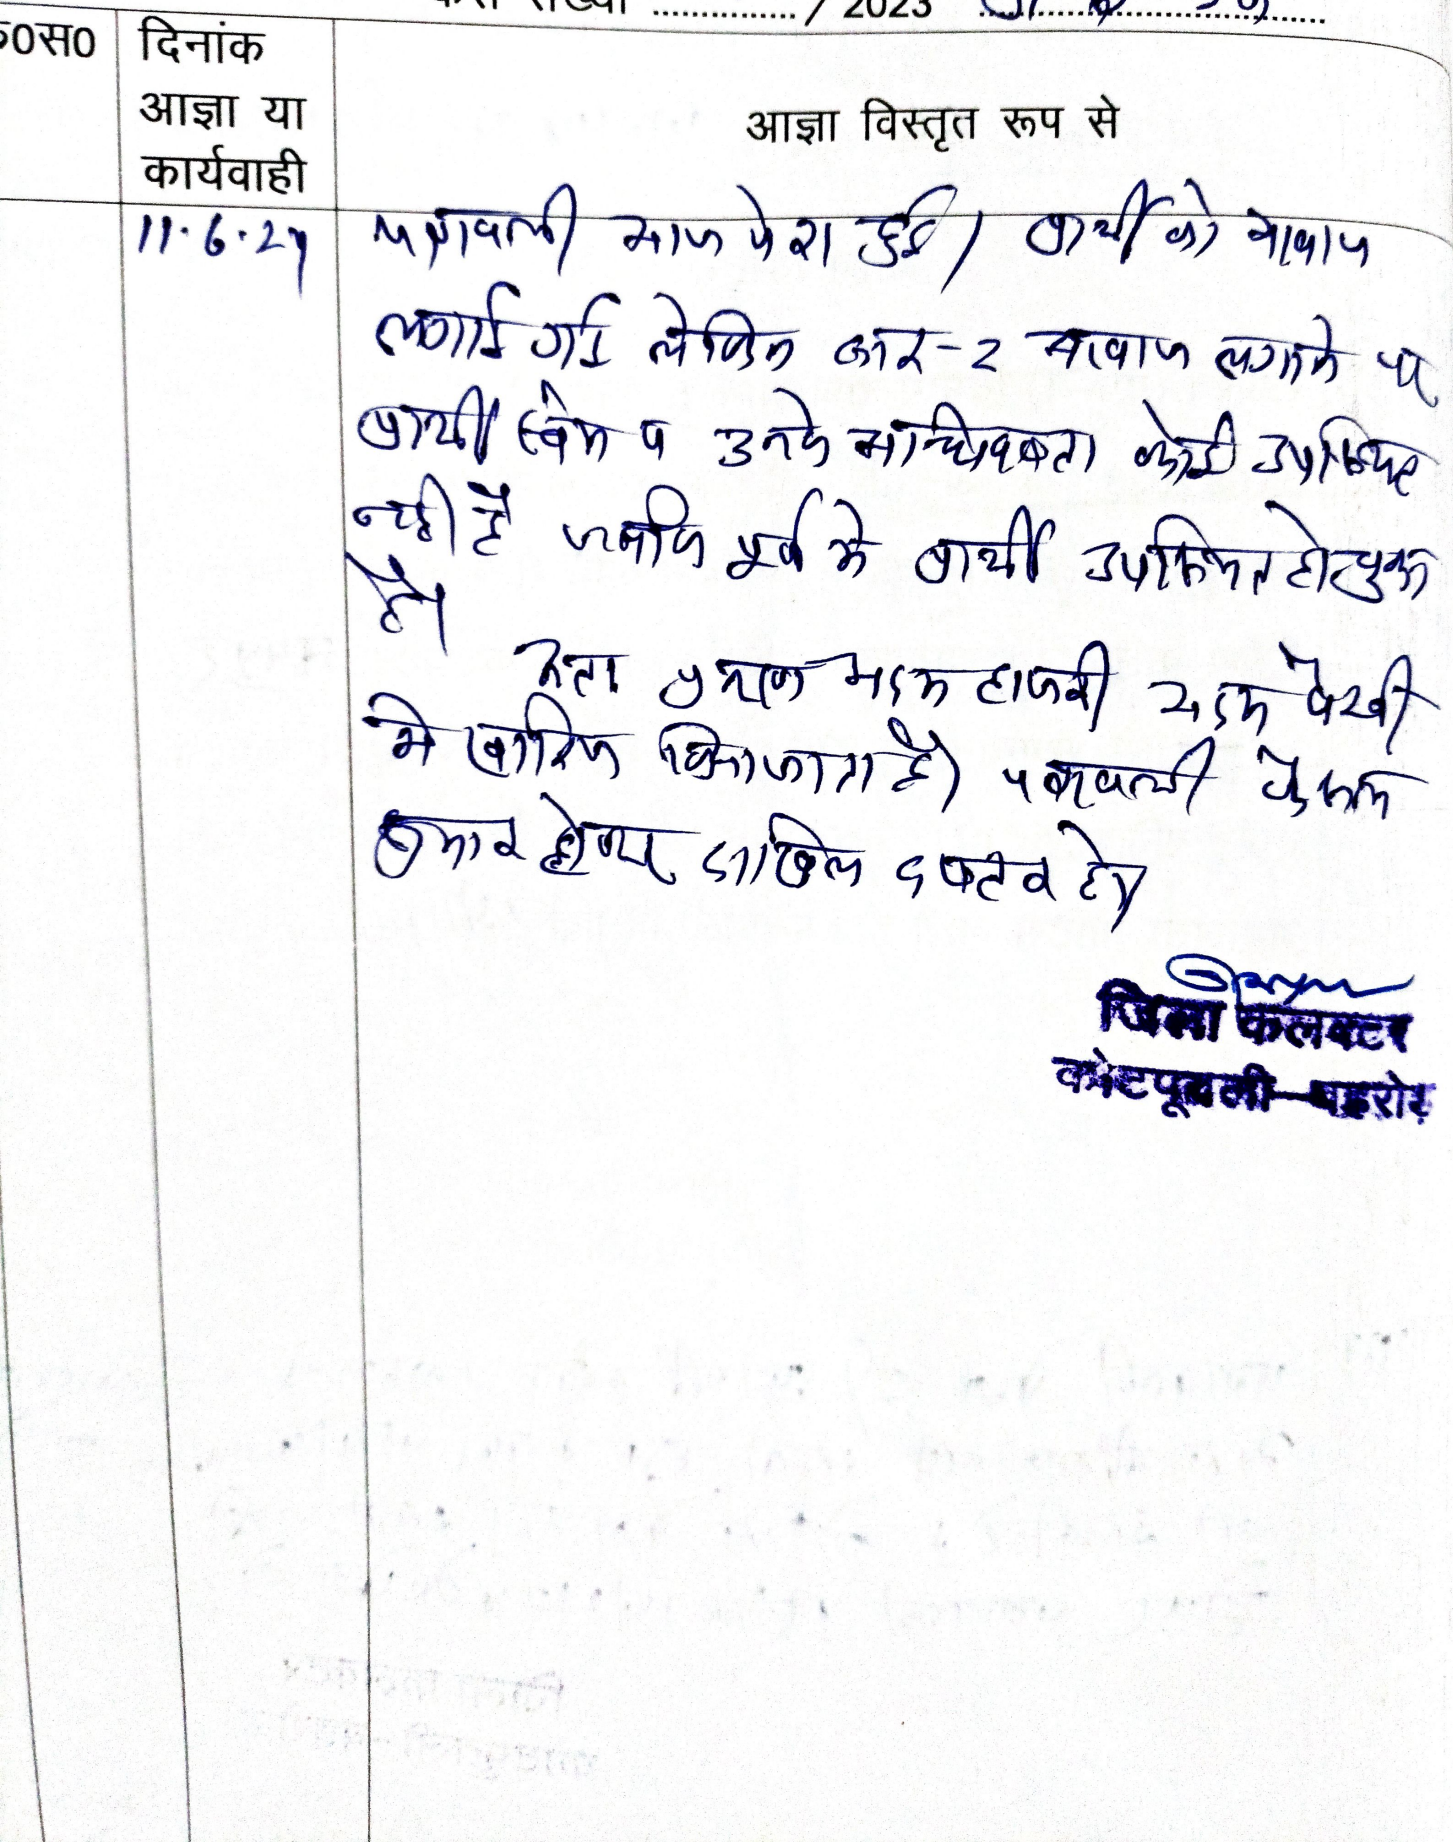 / 2023
क्र0स0 दिनांक
आज्ञा या
कार्यवाही
आज्ञा विस्तृत रूप से
11.6.24 पत्रावली आज पेश हुई। प्रार्थी को आवाज
लगाई गई लेकिन बार-2 आवाज लगाने पर
प्रार्थी स्वयं व उनके अधिवक्ता कोई उपस्थित
नहीं है जबकि पूर्व में प्रार्थी उपस्थित हो चुका
है।
अतः प्रकरण अदम हाजरी अदम पैरवी
में खारिज किया जाता है। पत्रावली फैसल
शुमार होकर दाखिल दफ्तर हो।
जिला कलक्टर
कोटपूतली-बहरोड़